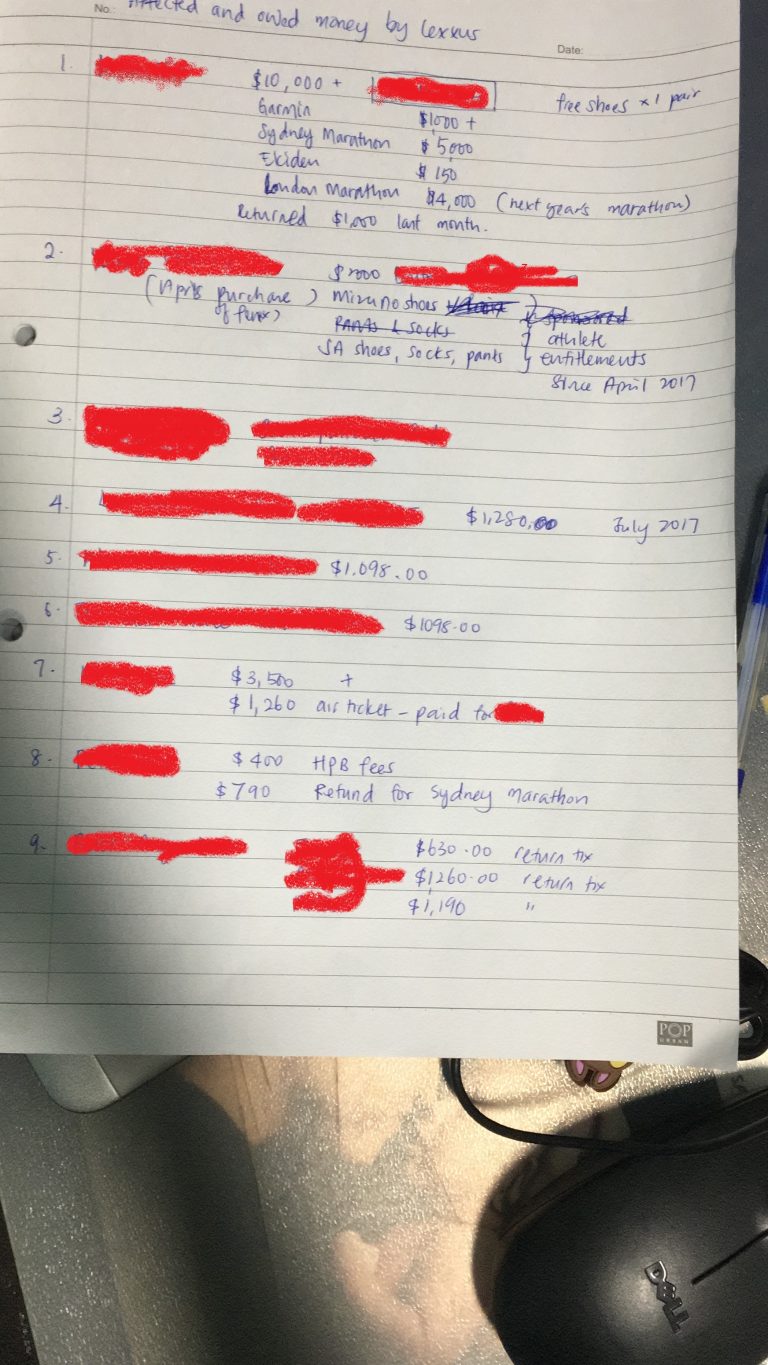 No.:
Affected and owed money by Lexxus
Date:
1. $10,000 + free shoes x 1 pair
Garmin $1000 +
Sydney Marathon $5000
Ekiden $150
London Marathon $4,000 (next year's marathon)
Returned $1,000 last month.
2.
(April's purchase ) Mizuno shoes
Pants & socks athlete
SA shoes, socks, pants entitlements
Since April 2017
3.
4. $1,280.00 July 2017
5. $1,098.00
6. $1098.00
7. $3,500 +
$1,260 air ticket - paid for
8. $400 HPB fees
$790 Refund for Sydney Marathon
9. $630.00 return tix
$1260.00 return tix
$1,190 "
POP
URBAN
DELL